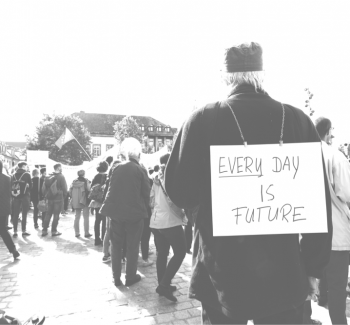 EVERY DAY
IS
FUTURE